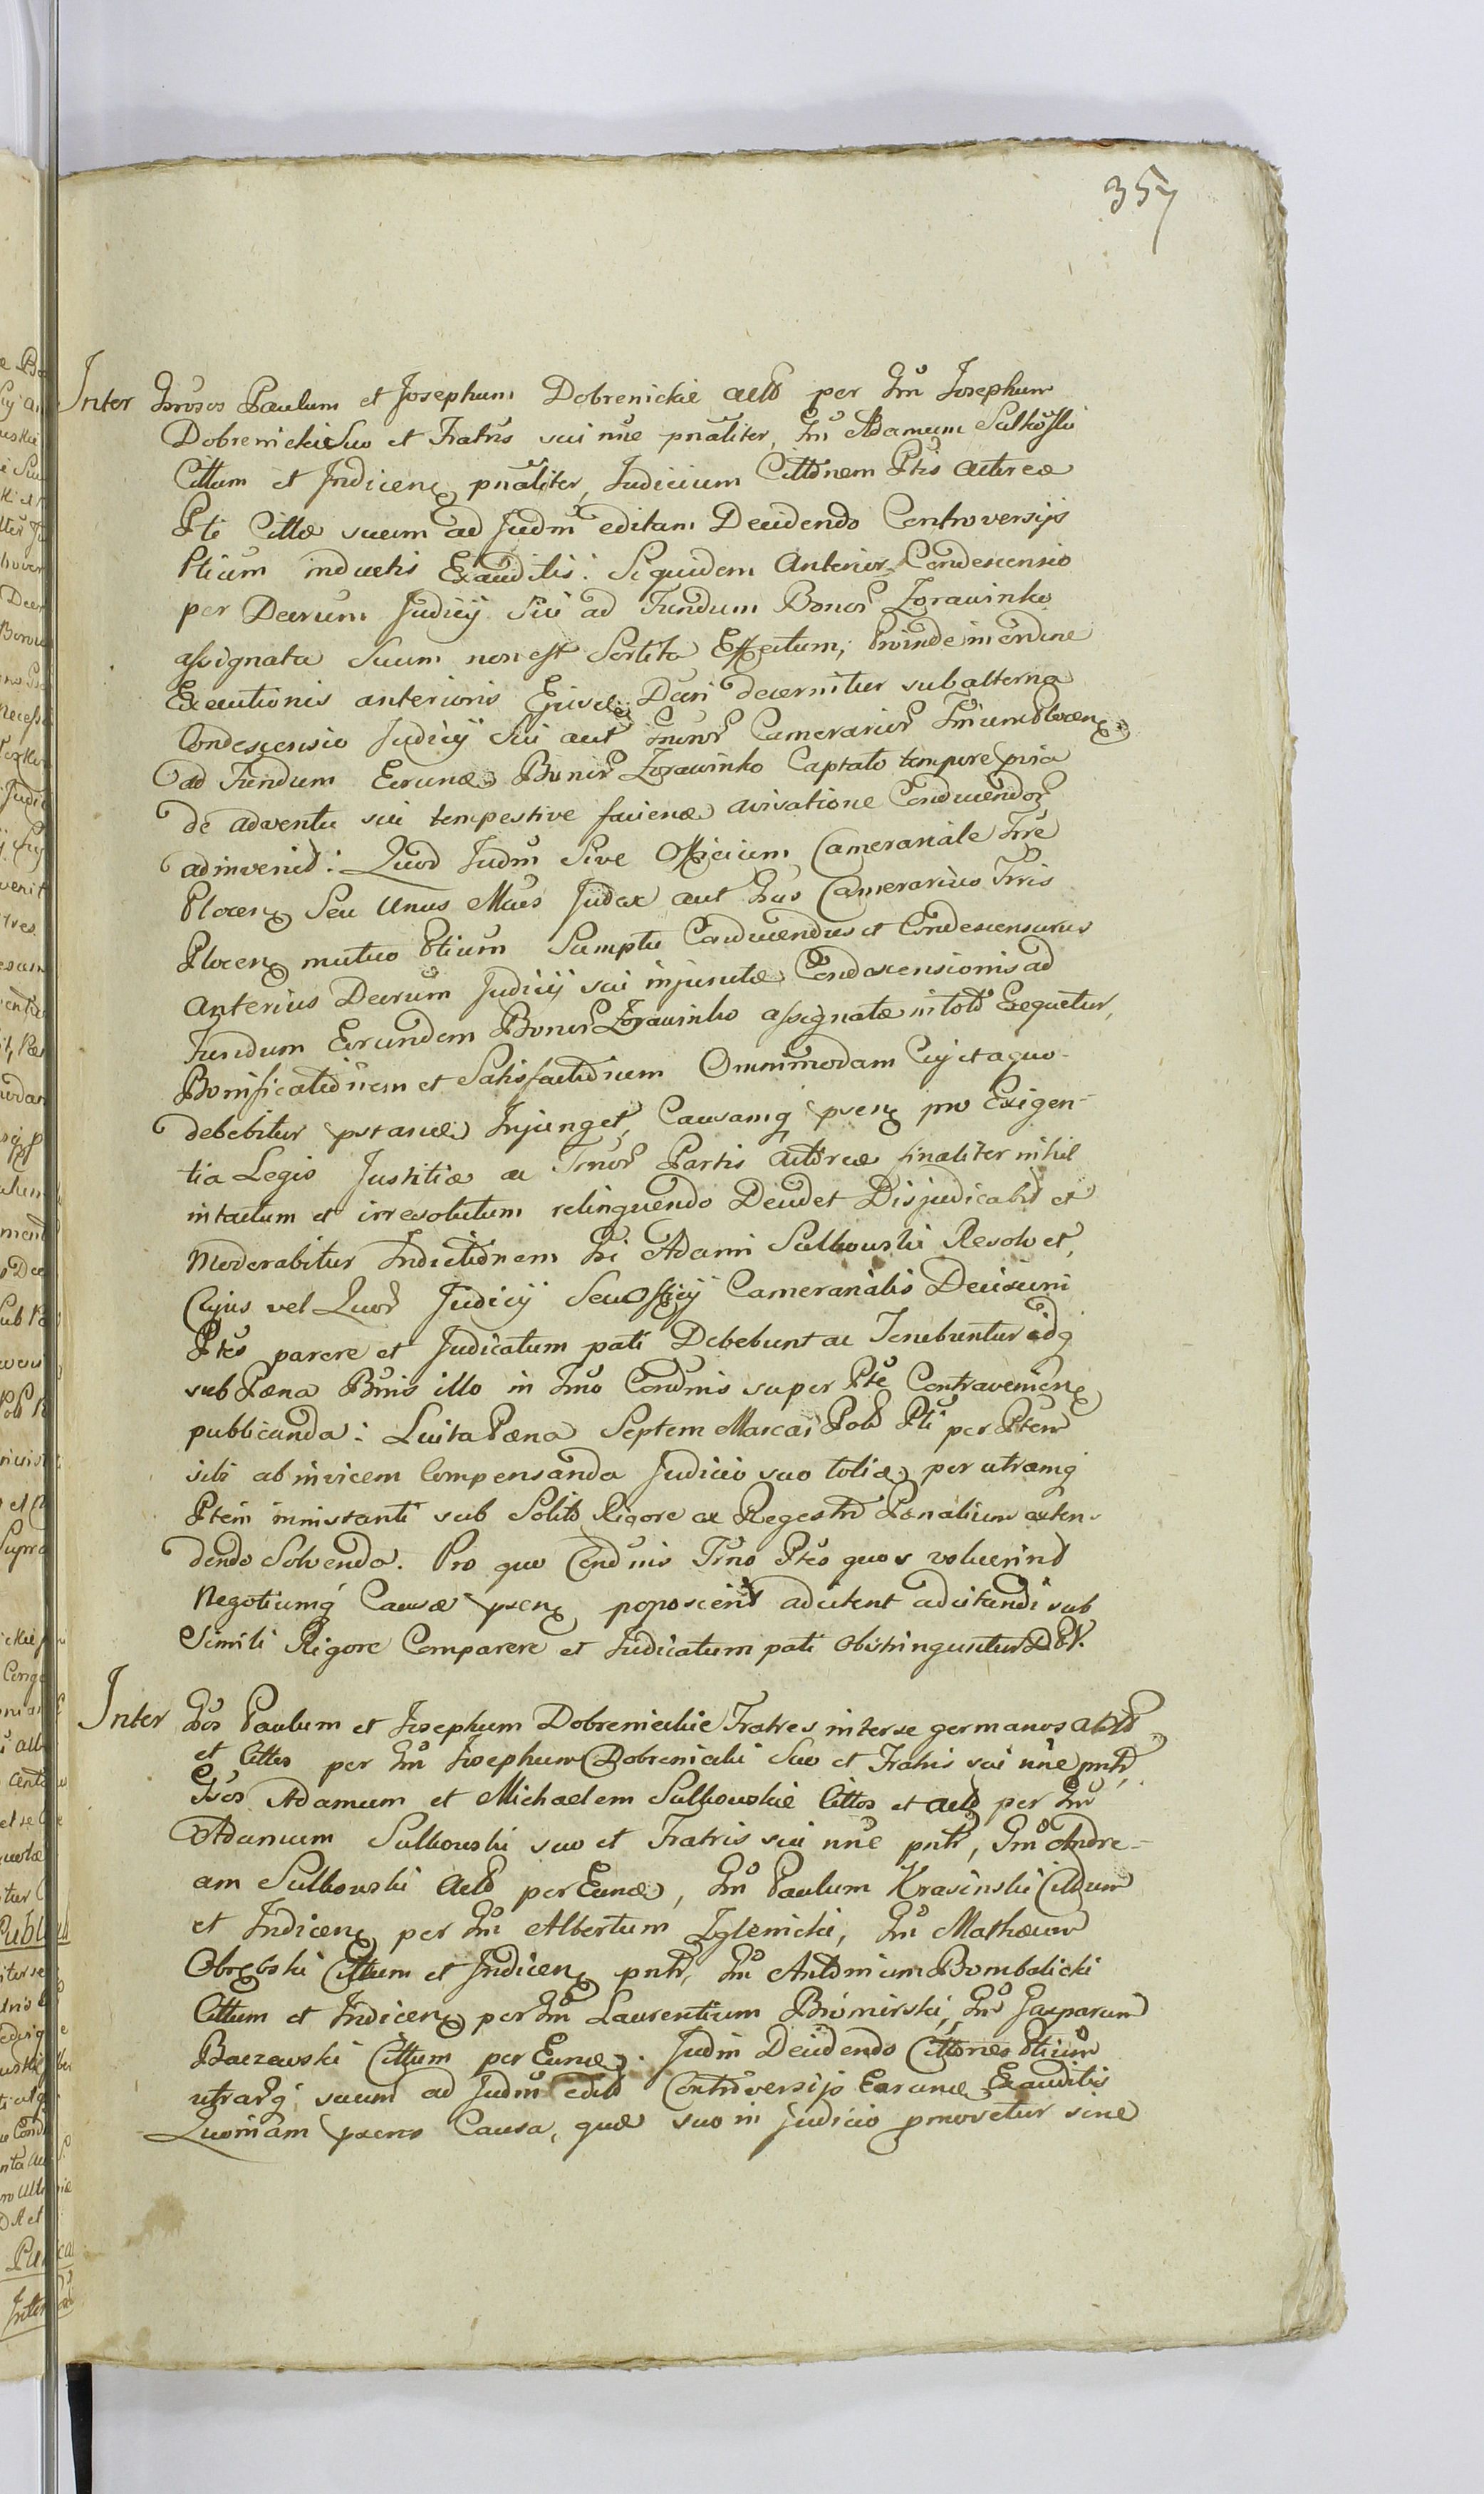 357
Inter Grosos Paulum et Josephum Dobrenickie actt per Gm Josephum
Dobrenicki Suo et Fratris sui nne pnaliter, Gm Adamum Sulkoski
Cittum et Indicen pnaliter, Judicium Cittonem Ptis actoreæ
Pti Cittæ suum ad Judm editam Decidendo Controversijs
Ptium inductis Exauditis: Siquidem Anterior Condescensio
per Decrum Judicij Sui ad Fundum Bonor Zorawinko
assignata Suum non est Sortita Effectum; Proinde in ordine
Executionis anterioris Ejusd Decri decernitur subalterna
Condescensio Judicij Sui aut Camerarior Plocen
ad Fundum Eorund Bonor Zorawinko Captato tempore pvia
de adventu sui tempestive faciend avisatione Conducendor
adinvenit: Quod Judm Sive Officium Camerariale Trre
Plocen Seu Unus Mcus Judex aut Gus Camerarius Trris
Plocen mutuo Ptium Sumptu Conducendus et Condescensurus
anterius Decrum Judicij sui injunctæ Condescensionis ad
Fundum Eorundem Bonor Zorawinko assignatæ in toto Exequetur,
Bonificationem et Satisfactionem Omnimodam Cuj et a quo
debebitur pstand Injunget, Causamq psen pro Exigen-
tia Legis Justitiæ ac Partis Actoreæ finaliter nihil
intactum et irresolutum relinquendo Decidet Disjudicabit et
Moderabitur Indictionem Gi Adami Sulkouski Resolvet,
Cujus vel Quor Judicij Seu Officij Camerarialis Decisioni
Ptes parere et Judicatum pati Debebunt ac Tenebuntur idq
sub Pæna Bnnis illo in Trno Condnis super Pte Contravenien
publicanda: Luita Pæna Septem Marcar Pol Pti per Ptem
sibi ab invicem Compensanda Judicio suo toties per utramq
Ptem ministranti sub Solito Rigore ex Regestro Pænalium exten-
dendo Solvenda. Pro quo Condnis Trno Ptes quos voluerint
Negotiumq Causæ psen poposcerit adcitent adcitandi sub
Simili Rigore Comparere et Judicatum pati obstringuntur DPV.
Inter Gos Paulum et Josephum Dobrenickie Fratres inter se germanos actt
et Cittos per Gm Josephum Dobrenicki Suo et Fratris sui nne pntr,
Gsos Adamum et Michaelem Sulkouskie Cittos et actt per Gm
Adamum Sulkouski suo et Fratris sui nne pntr, Gm Andre-
am Sulkouski actt per Eund, Gm Paulum Krasinski Cittum
et Indicen per Gm Albertum Zglenicki, Gm Mathæum
Obrębski Cittum et Indicen pntr, Gm Antonium Bombalicki
Cittum et Indicen per Gm Laurentium Bromirski, Gm Gasparum
Baczewski Cittum per Eund. Judm Decidendo Cittones Ptium
utrarq suum ad Judm edit Controversijs Earund Exauditis
Quoniam psens Causa, quæ suo in Judicio pmovetur sine